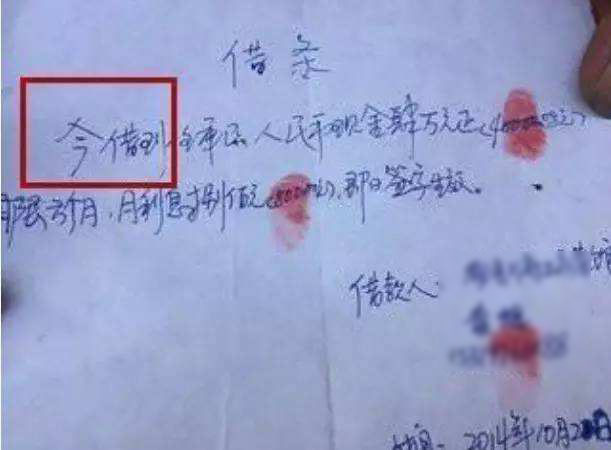 借条
今借到 人民币现金肆万元正(40000元)
期限 个月,月利息 捌佰元(800元),即日签字生效。
借款人:
2014年10月2 日